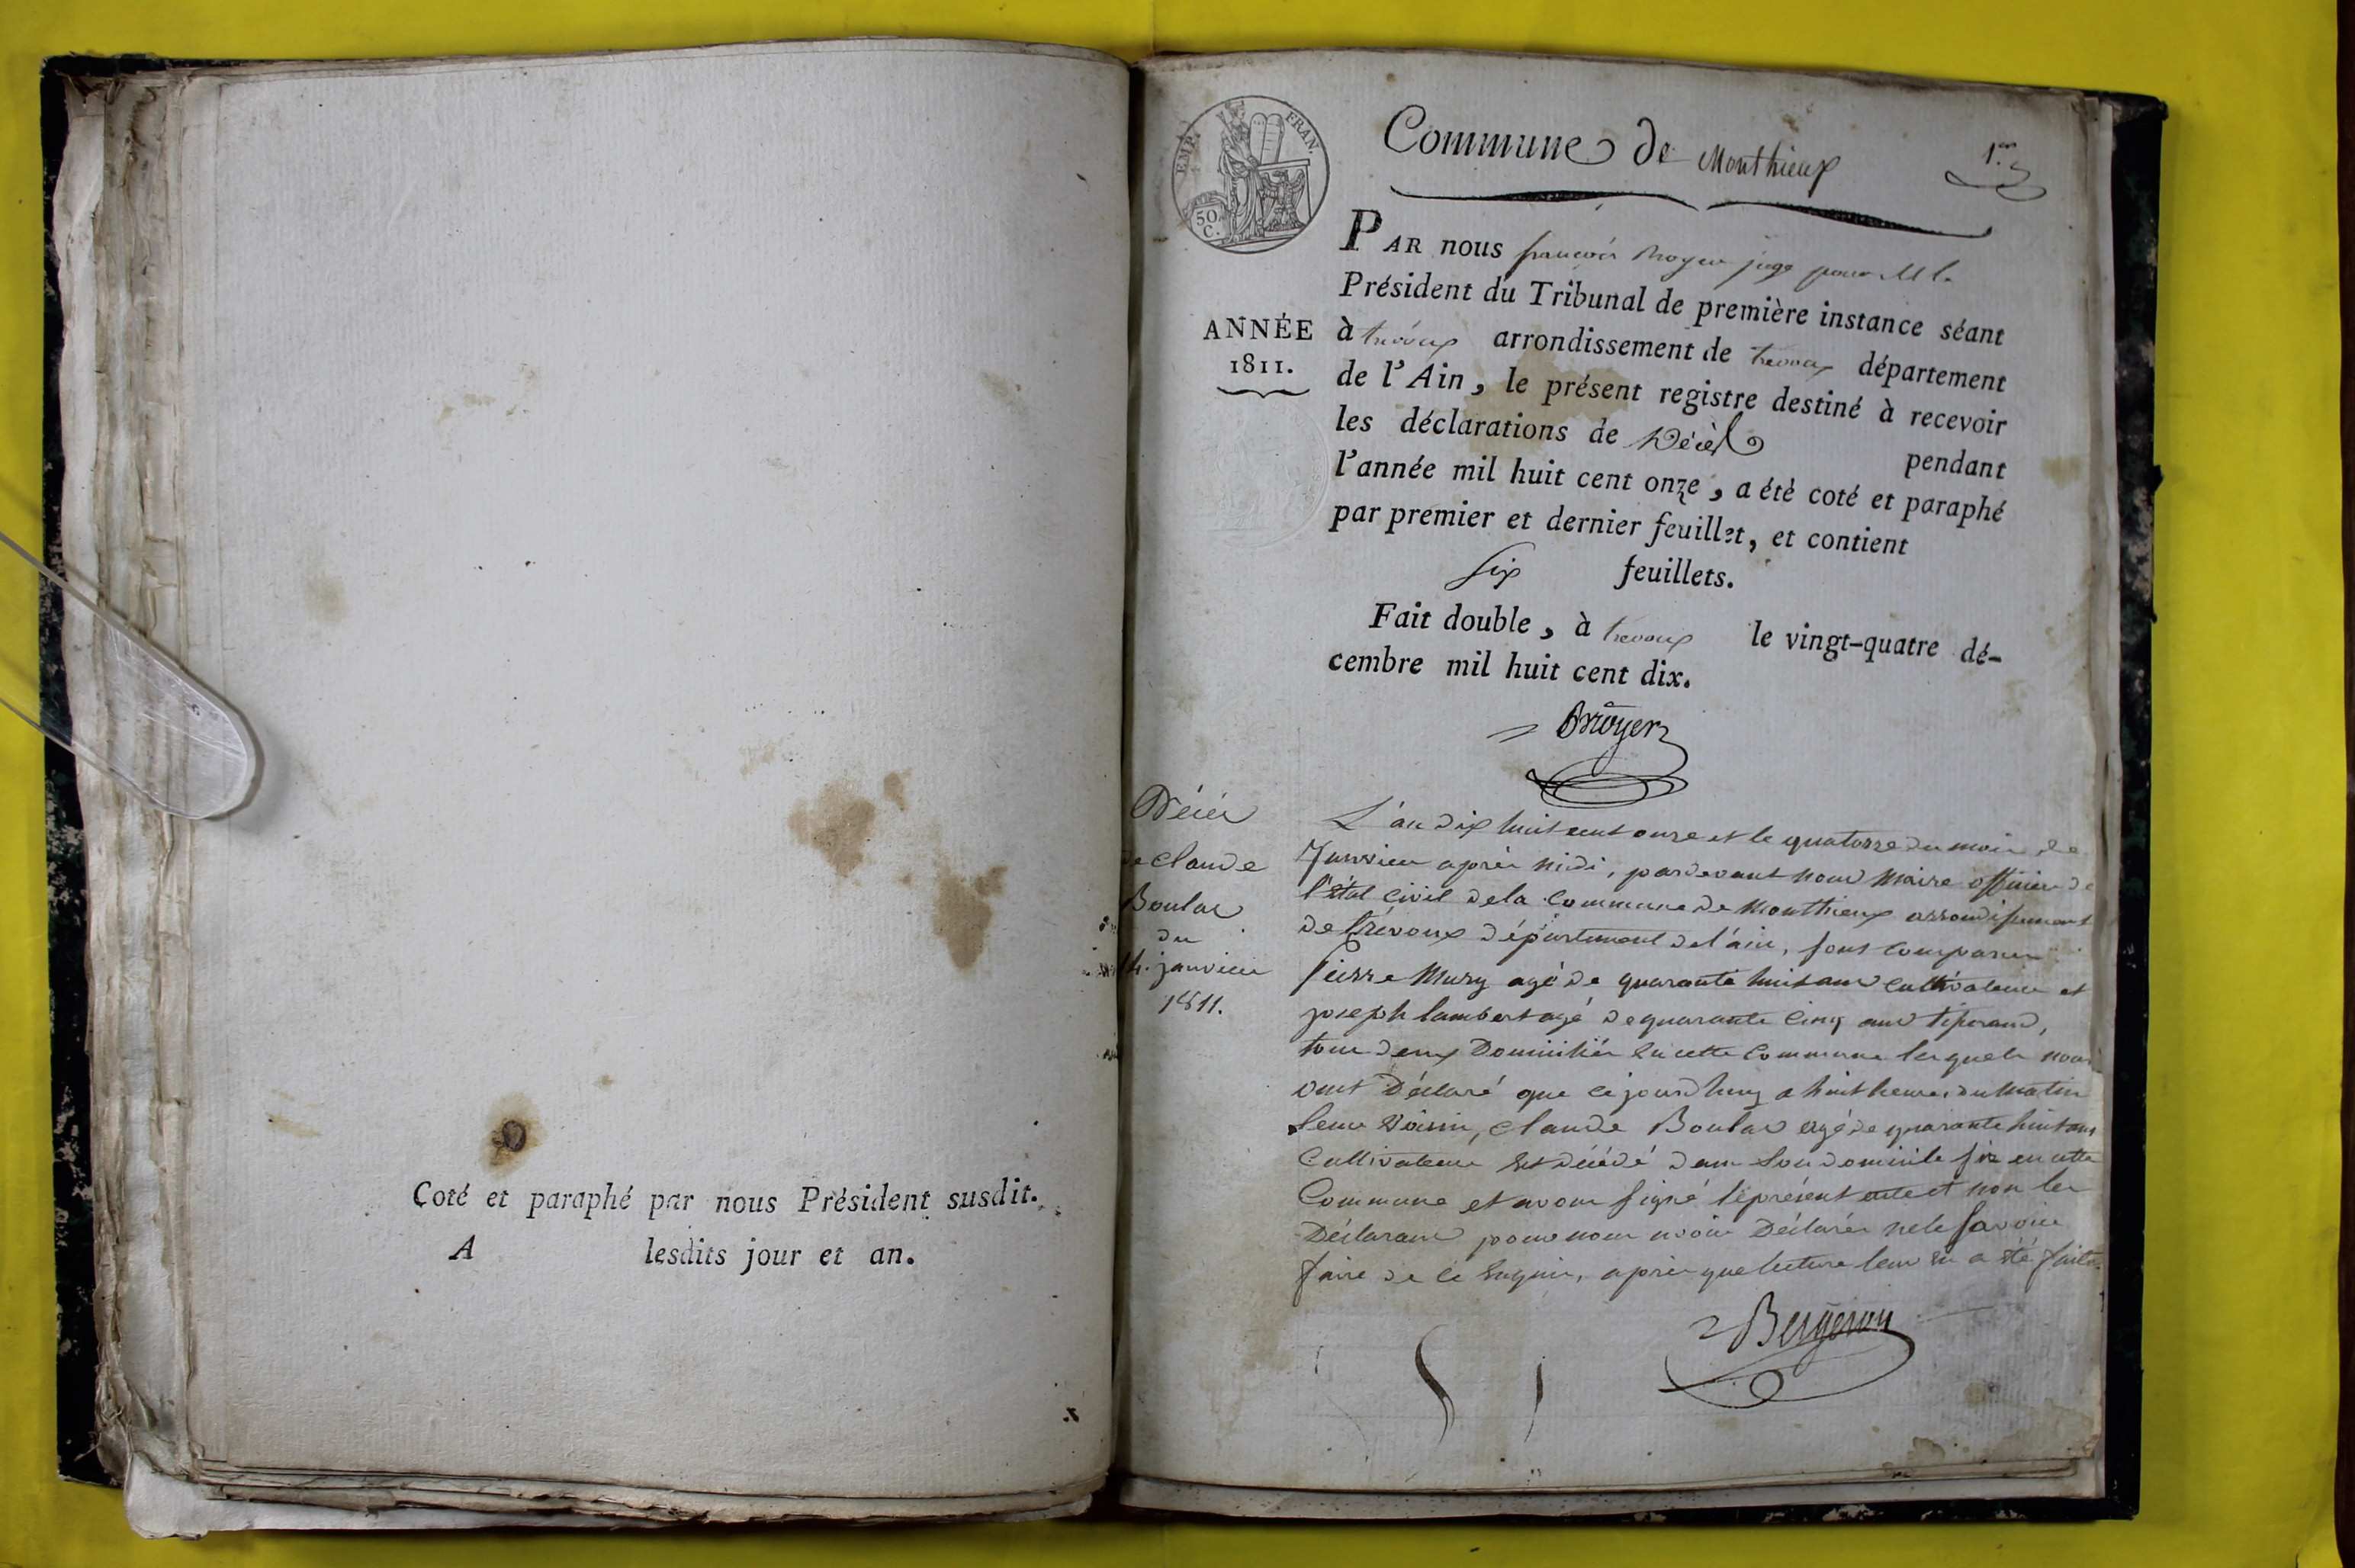 Coté et paraphé par nous Président susdit.
A lesdits jour et an.
EMP. FRAN.
50. C.
Commune de Monthieux
1.er
PAR nous françois Moyer juge pour M le
Président du Tribunal de première instance séant
à trévoux arrondissement de trevoux département
de l'Ain, le présent registre destiné à recevoir
les déclarations de Décès pendant
l'année mil huit cent onze, a été coté et paraphé
par premier et dernier feuillet, et contient
six feuillets.
Fait double, à trevoux le vingt-quatre dé-
cembre mil huit cent dix.
ANNÉE
1811.
Décès
de Claude
Boulas
du
14. janvier
1811.
L'an dix huit cent onze et le quatorze du mois de
Janvier après midi, pardevant nous Maire officier de
l'état civil de la Commune de Monthieux arrondissement
de trévoux département de l'ain, sont comparus
Pierre Mury agé de quarante huit ans cultivateur et
joseph lambert agé de quarante cinq ans tisserand,
tous deux Domiciliés en cette Commune lesquels nous
ont Déclaré que ce jourdhuy a huit heures du Matin
leur voisin, Claude Boulas agé de quarante huit ans
Cultivateur est décédé dans son domicile six en cette
Commune et avons signé le présent acte et non les
Déclarans pour nous avoir Déclarés ne le savoir
faire de ce enquis, après que lecture leur en a été faite.
Bergeron